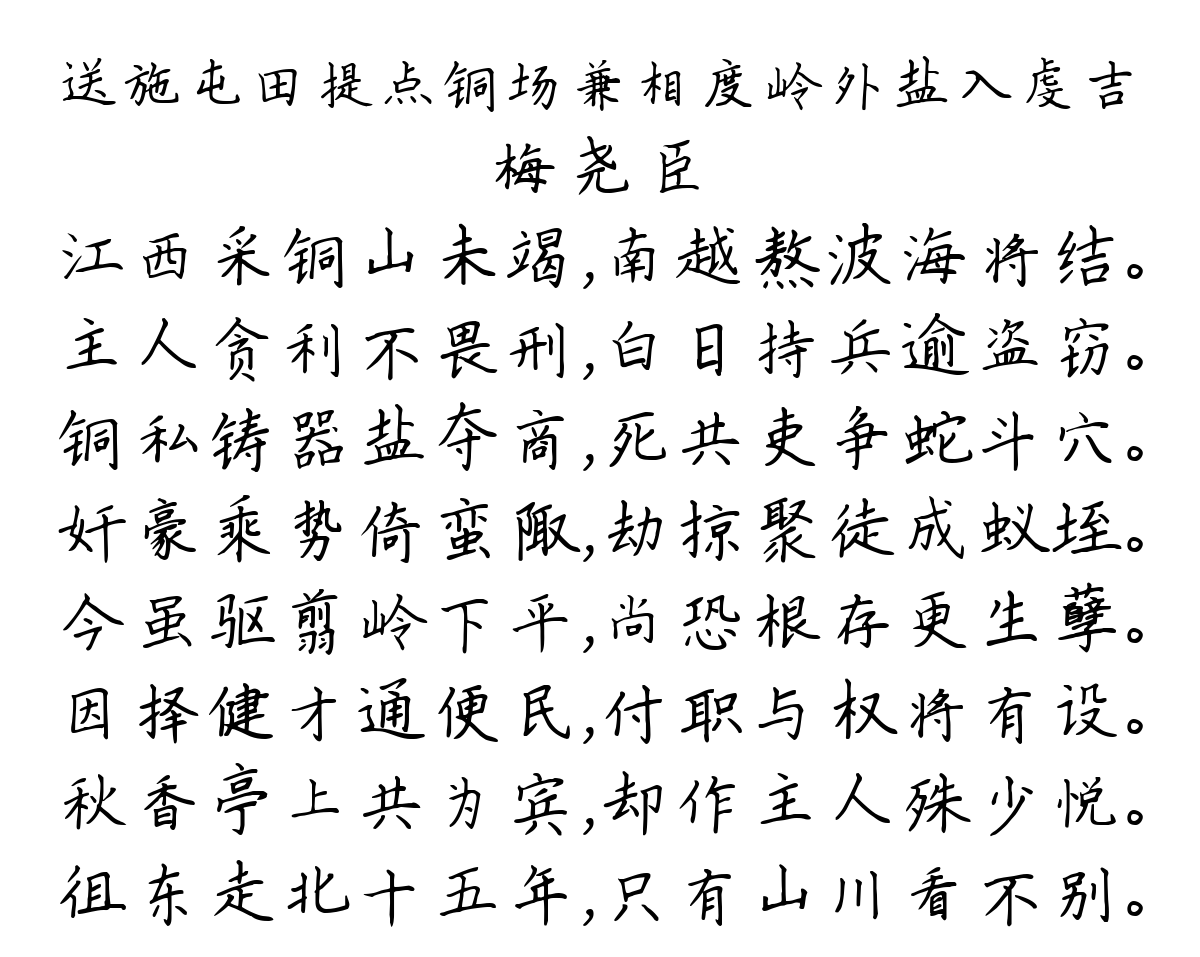 送施屯田提点铜场兼相度岭外盐入虔吉
梅尧臣
江西采铜山未竭,南越熬波海将结。
主人贪利不畏刑,白日持兵逾盗窃。
铜私铸器盐夺商,死共吏争蛇斗穴。
奸豪乘势倚蛮陬,劫掠聚徒成蚁垤。
今虽驱翦岭下平,尚恐根存更生孽。
因择健才通便民,付职与权将有设。
秋香亭上共为宾,却作主人殊少悦。
徂东走北十五年,只有山川看不别。